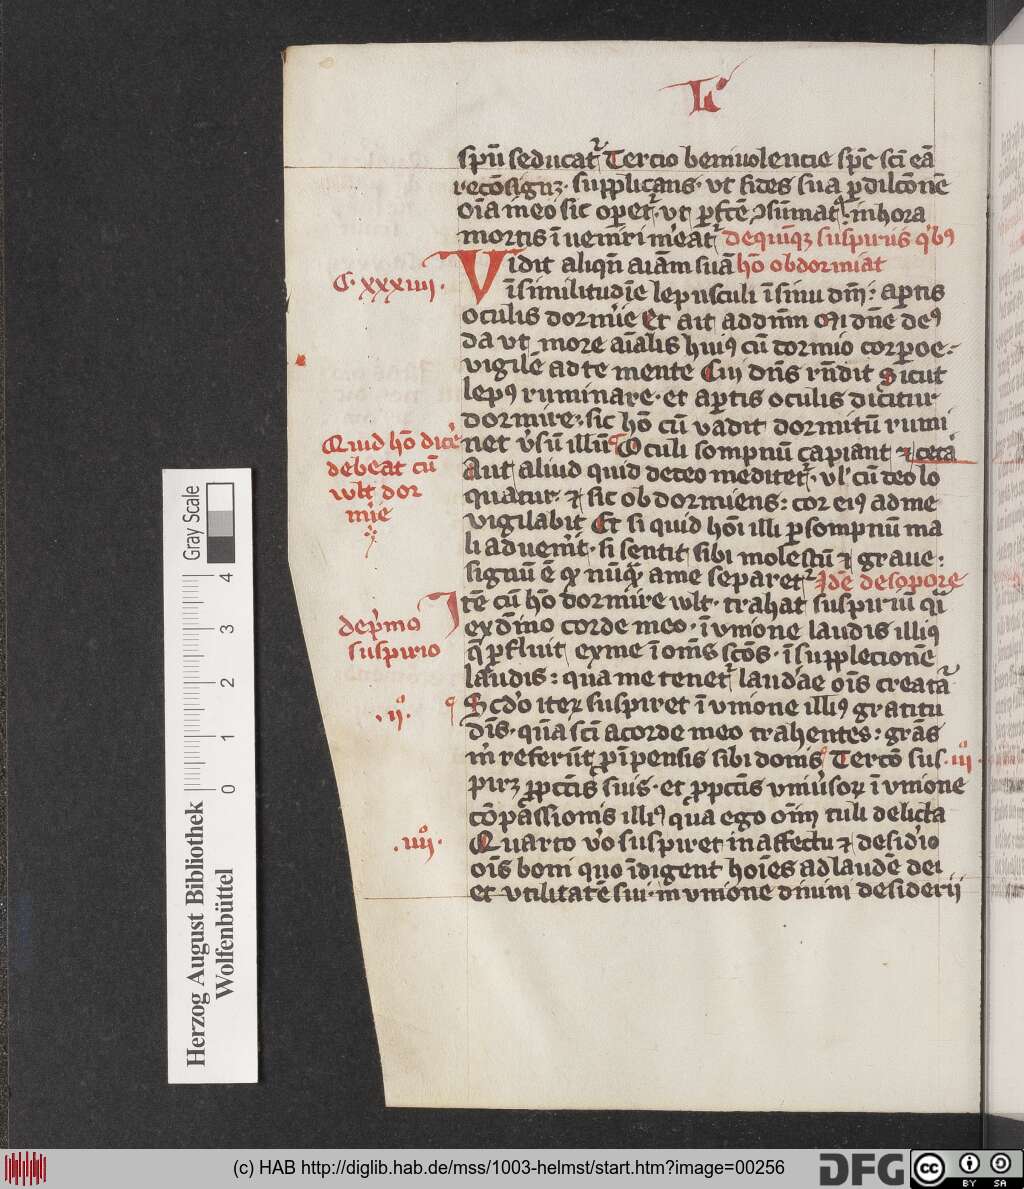 L
spū seducat᷑ Tercio beniuolencie sp̄c sc̄i eā
recōsignꝫ· supplicans· vt fides sua ꝑdilc̄onē
oīa ineo sic operet᷑· vt ꝑfc̄e ꝯsūmat᷑· inhora
mortis īueniri m̓eat᷑ dequīqꝫ suspirijs qͥbꝰ
C· xxxiiij·
Vidit aliqn̄ aīam suā hō obdormiat
ī similitudīe lepusculi ī sinu dn̄i: aptis
oculis dormīe Et ait addnm̄ Mi dn̄e deꝰ
da vt more aīalis huiꝰ cū dormio corꝑoe⸗
vigilē adte mente Cui dn̄s rn̄dit Sicut
lepꝰ ruminare· et aptis oculis dicitur
dormire: sic hō cū vadit dormitū rumi
Quid hō dic̓e
debeat cū
wlt dor
mīe
net v̓sū illū Oculi sompnū capiant ⁊ cetā
Aut aliud quid deteo meditet᷑· vl̓ cū deo lo
quatur· ⁊ sic obdormiens: cor eius adme
vigilabit Et si quid hōi illi ꝑ sompnū ma
li aduen̓it· si sentit sibi molestū ⁊ graue:
signū ē ꝙ nūqͣ ame separet᷑ Idē desopore
deprͥmo
suspirio
Itē cū hō dormire wlt· trahat suspiriū qͣi
ex dīno corde meo· ī vnione laudis illiꝰ
q̄ ꝑfluit ex me ī om̄s sc̄os· ī supplecionē
laudis: qua me tenet᷑ laudāe oīs creatā᷑
·ijͦ·
Scdͦo iteꝝ suspiret ī vnione illiꝰ gratitu
dīs· quā sc̄i acorde meo trahentes: grās
m̓ referūt ꝓ īpensis sibi donis Tercō sus· iijͦ·
piꝛꝫ ꝓ pctīs suis· et ꝓ pctīs vniu̓soꝝ ī vnione
cōpassionis illiꝰ quā ego oīm tuli delicta
·iiijͦ·
Quarto v̓o suspiret in affectu ⁊ desid̓io
oīs boni quo īdigent hoīes ad laudē dei
et vtilitatē sui· in vnione diuini desiderij
Herzog August Bibliothek
Wolfenbüttel
Gray Scale
0 1 2 3 4
(c) HAB http://diglib.hab.de/mss/1003-helmst/start.htm?image=00256
DFG
cc BY SA